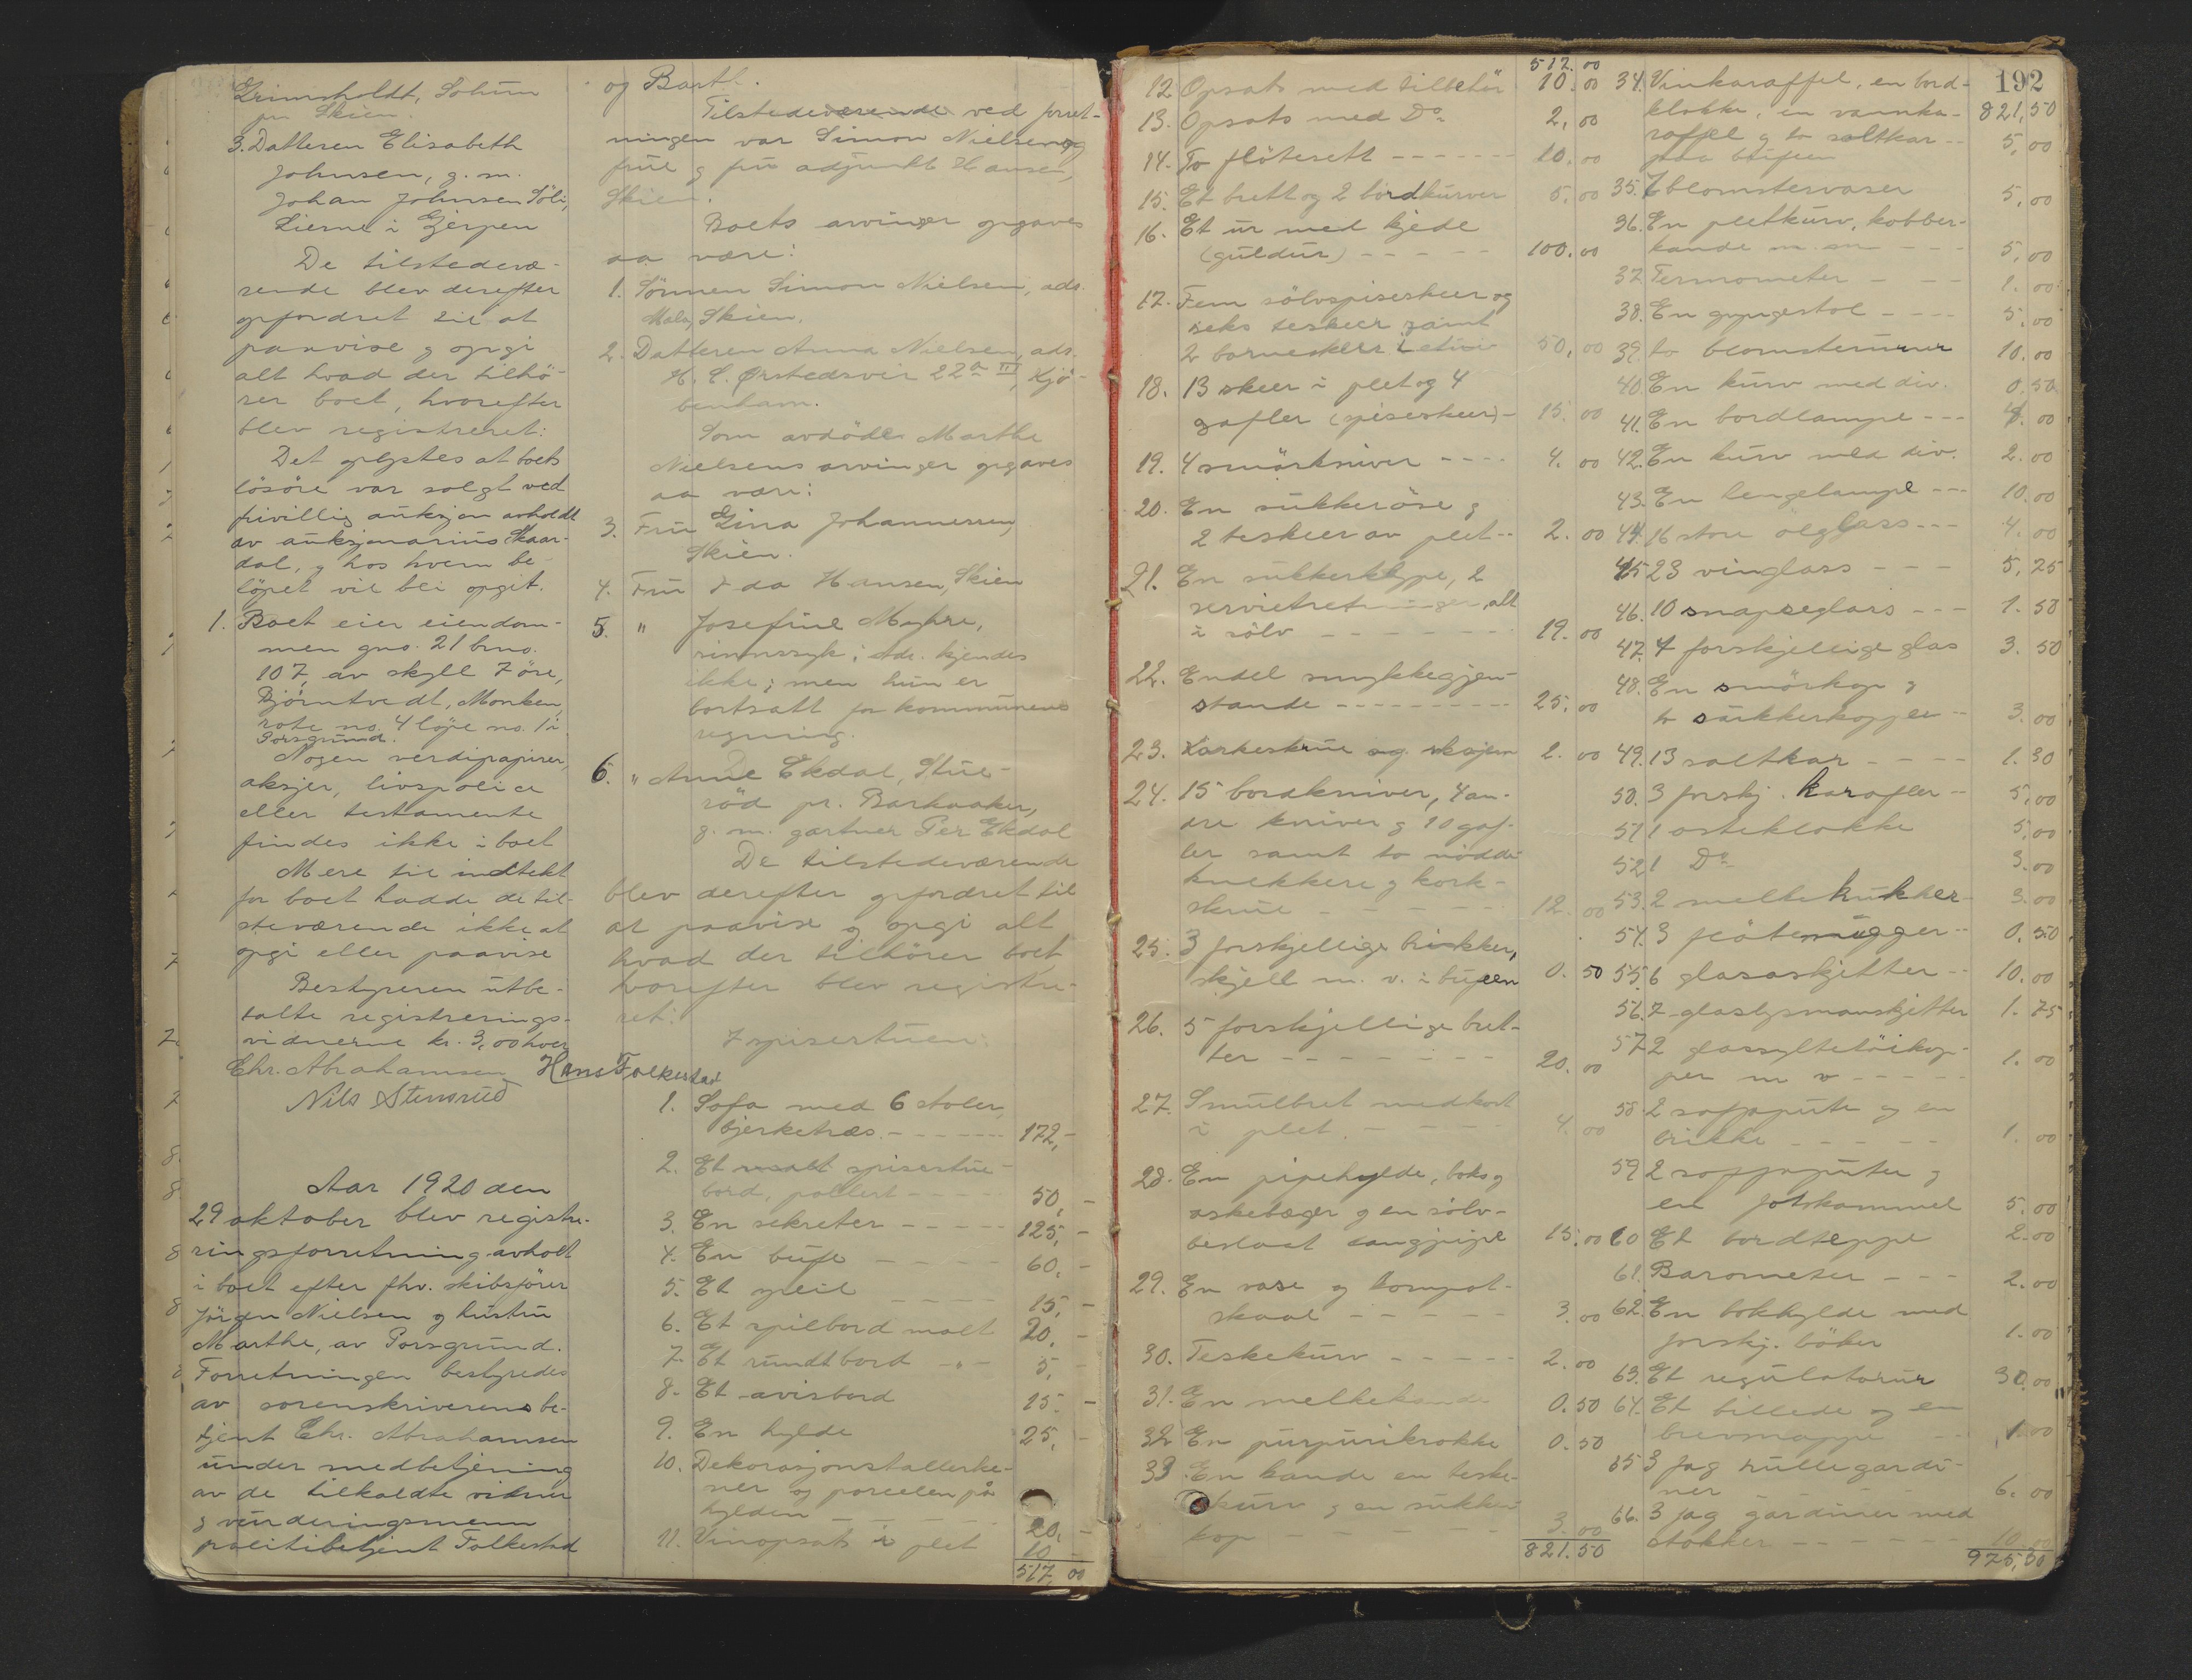 Grimsholdt, Solum
pr. Skien.
3. Datteren Elisabeth
Johnsen, g. m.
Johan Johnsen Sóli,
Lierne i Gjerpen
De tilstedevæ-
rende blev derefter
opfordret til at
paavise og opgi
alt hvad der tilhø-
rer boet, hvorefter
blev registreret:
Det oplystes at boets
løsøre var solgt ved
frivillig auksjon avholdt
av auksjonarius Skaar-
dal, og hos hvem be-
løpet vil bli opgit.
1. Boet eier eiendom-
men gno. 21 bno.
107, av skyll 7 øre,
Bjørntvedt, Monken,
rote no. 4 løpe no. 1 i
Porsgrund.
Nogen verdipapirer,
aksjer, livspolice
eller testamente
findes ikke i boet
Mere til indtekt
for boet hadde de til-
steværende ikke at
opgi eller paavise
Bestyreren utbe-
talte registrerings-
vidnerne kr. 3,00 hver
Chr. Abrahamsen Hans Folkestad
Nils Stensrud
Aar 1920 den
29 oktober blev registre-
ringsforretning avholt
i boet efter fhv. skibsfører
Jørgen Nielsen og hustru
Marthe, av Porsgrund.
Forretningen bestyredes
av sorenskriverens be-
tjent Chr. Abrahamsen
under medbetjening
av de tilkaldte vidner
og vurderingsmenn
politibetjent Folkestad
og Barth.
Tilstedeværende ved forret-
ningen var Simon Nielsen og
frue og fru adjunkt Hansen,
Skien.
Boets arvinger opgaves
aa være:
1. Sønnen Simon Nielsen, ads.
Mæla, Skien.
2. Datteren Anna Nielsen, ads.
H. C. Ørstedsvei 22a III, Kjø-
benhavn.
Som avdøde Marthe
Nielsens arvinger opgaves
aa være:
3. Fru Gina Johannessen,
Skien.
4. Fru Ida Hansen, Skien
5. " Josefine Myhre,
sinnssyk; adr. kjendes
ikke; men hun er
bortsatt for kommunens
regning.
6. " Anne Ekdal, Stue-
rød pr. Barkaaker,
g. m. gartner Per Ekdal
De tilstedeværende
blev derefter opfordret til
at paavise og opgi alt
hvad der tilhører boet,
hvorefter blev registre-
ret:
I spisestuen:
1. Sofa med 6 stoler,
bjerketræs. - - - 172,-
2. Et ovalt spisestue-
bord, polert - - - 50,-
3. En sekretær - - - 125,-
4. En bufe - - - 60,-
5. Et speil - - - 15,-
6. Et spilbord malt 20,-
7. Et rundt bord - " - 5,-
8. Et avisbord 15,-
9. En hylde 25,-
10. Dekorasjonstallerke-
ner og porcelen på
hylden - - - 20,-
11. Vinopsats i plet 10
517,00
192
517.00
12. Opsats med tilbehør 10.00
13. Opsats med Do 2,00
14. To fløtesett - - - 10.00
15. Et brett og 2 bordkurver 5.00
16. Et ur med kjede
(guldur) - - - 100.00
17. Fem sølvspiseskeer og
seks teskeer samt
2 barneskeer i etui 50,00
18. 13 skeer i plet og 4
gafler (spiseskeer) - 15.00
19. 4 smørkniver - - - 4.00
20. En sukkerøse og
2 teskeer av plet - - 2.00
21. En sukkerklype, 2
alt
i sølv - - - 19.00
22. Endel smykkegjen-
stande - - - 25.00
23. Korkeskrue og skajern 2.00
24. 15 bordkniver, 4 an-
dre kniver og 10 gaf-
ler samt to nødde-
knekkere og kork-
skrue - - - 12.00
25. 3 forskjellige brikker,
skjell m. v. i bufeen 0.50
26. 5 forskjellige bret-
ter - - - 20.00
27. Smulbret med kost
i plet. - - - 4.00
28. En pipehylde, boks og
askebæger og en sølv-
beslaat langpipe 15.00
29. En vase og kompot-
skaal - - - 3.00
30. Teskekurv - - - 2.00
31. En melkekande 0.50
32 En purpurikrokke 0.50
33. En kande en teske-
kurv og en sukker-
kop - - - 3.00
821.50
34. Vinkaraffel, en bord-
821,50
klokke, en vannka-
raffel og to saltkar - - 5,00
paa bufeen
35. 7 blomstervaser 5,00
36. En pletkurv, kobber-
kande m. m. - - - 5,00
37. Termometer - - - 1.00
38. En gyngestol - - - 5.00
39. to blomsterurner 10.00
40. En kurv med div. 0.50
41. En bordlampe - - - 4.00
42. En kurv med div. 2.00
43. En hengelampe - - - 10.00
44. 16 store ølglass - - - 4.00
45 23 vinglass - - - 5,25
46. 10 snapseglass - - - 1.50
47. 4 forskjellige glas 3.50
48. En smørkop og
to sukkerkopper - - 3.00
49. 13 saltkar - - - 1.30
50. 3 forskj. karafler - - 5,00
51 1 osteklokke 5,00
52 1 Do 3.00
53. 2 melkekrukker 3.00
54. 3 fløtemugger - - 0.50
55. 6 glasaskjetter - - 10.00
56. 7 glaslysmanskjetter 1.75
57 2 glassyltetøikop-
per m v - - - 1.00
58. 2 sofapute og en
brikke - - - 1.00
59 2 sofaputer og
en fotskammel 5.00
60 Et bordteppe 2.00
61. Barometer - - - 2.00
62. En bokhylde med
forskj. bøker 1.00
63. Et regulatorur 30.00
64. Et billede og en
brevmappe - - 1.00
65 3 fag rullegardi-
ner 6.00
66. 3 fag gardiner med
stokker - - - 10.00
975,30